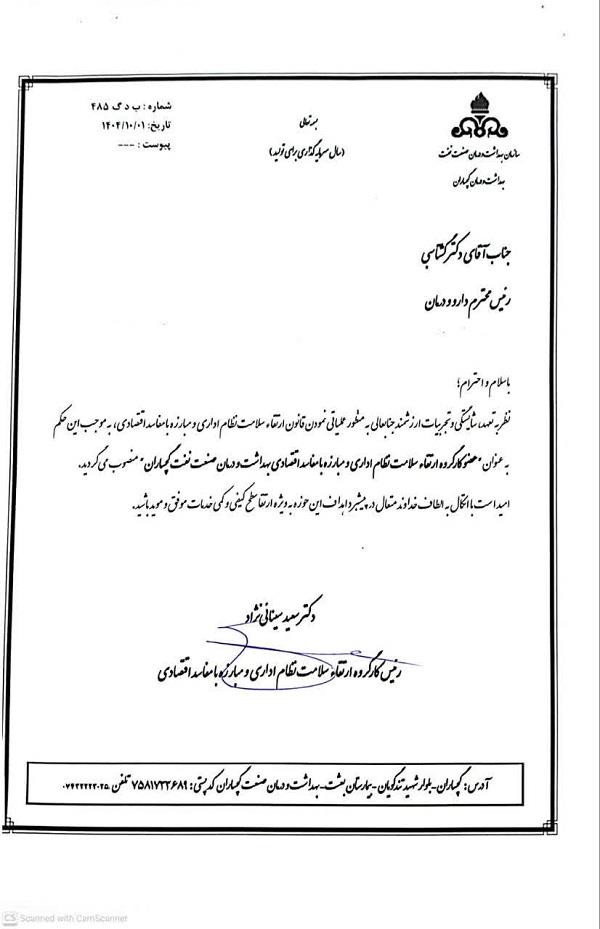 شماره: ب د گ ۴۸۵
تاریخ: ۱۴۰۴/۱۰/۰۱
پیوست: ---
بسمه تعالی
(سال سرمایه گذاری برای تولید)
سازمان بهداشت و درمان صنعت نفت
بهداشت و درمان گچساران
جناب آقای دکتر گشتاسبی
رئیس محترم دارو و درمان
باسلام و احترام؛
نظر به تعهد، شایستگی و تجربیات ارزشمند جنابعالی به منظور عملیاتی نمودن قانون ارتقاء سلامت نظام اداری و مبارزه با مفاسد اقتصادی، به موجب این حکم
به عنوان "عضو کارگروه ارتقاء سلامت نظام اداری و مبارزه با مفاسد اقتصادی بهداشت و درمان صنعت نفت گچساران" منصوب می گردید.
امید است با اتکال به الطاف خداوند متعال در پیشبرد اهداف این حوزه به ویژه ارتقا سطح کیفی و کمی خدمات موفق و موید باشید.
دکتر سعید سینائی نژاد
رئیس کارگروه ارتقاء سلامت نظام اداری و مبارزه با مفاسد اقتصادی
آدرس: گچساران-بلوار شهید تندگویان-بیمارستان بعثت-بهداشت و درمان صنعت گچساران کد پستی: ۷۵۸۱۷۳۳۶۸۹ تلفن
CS Scanned with CamScanner